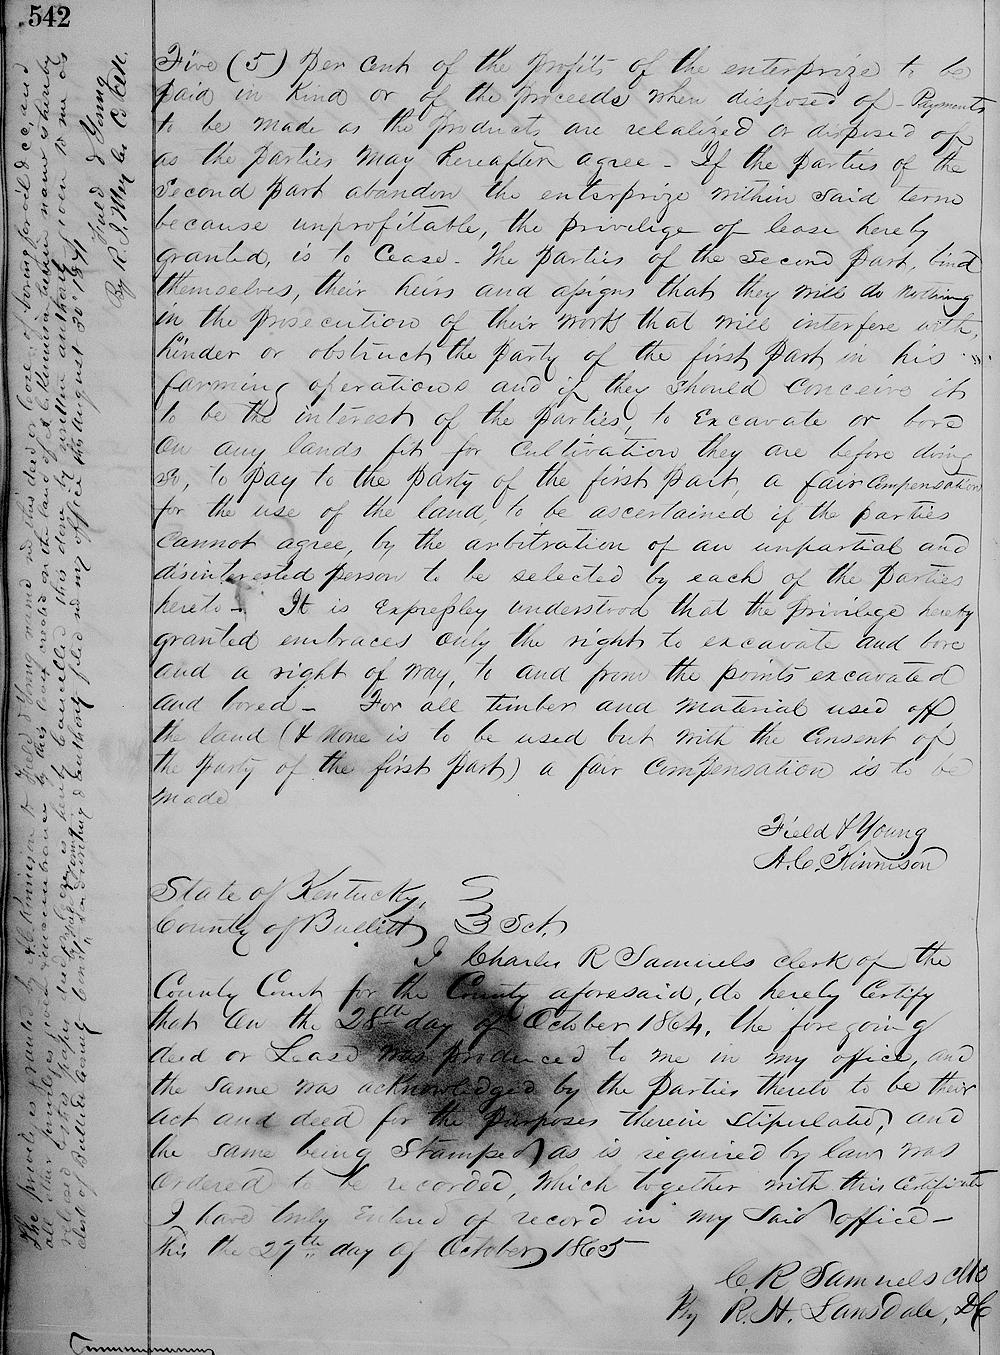 542
Five (5) per cent of the profits of the enterprize to be
paid in kind or of the proceeds when disposed of - Payments
to be made as the products are relalized or disposed of
as the parties may hereafter agree - If the parties of the
second part abandon the enterprize within said term
because unprofitable, the privilege of lease hereby
granted, is to cease. The parties of the second part, bind
themselves, their heirs and assigns that they will do nothing
in the prosecution of their work that will interfere with,
hinder or obstruct the party of the first part in his
farming operations and if they should conceive it
to be the interest of the parties, to excavate or bore
on any lands fit for cultivation they are before doing
so, to pay to the party of the first part, a fair compensation
for the use of the land, to be ascertained if the parties
cannot agree, by the arbitration of an unpartial and
disinterested person to be selected by each of the parties
hereto - It is expressley understood that the privilege hereby
granted embraces only the right to excavate and bore
and a right of way, to and from the points excavated
and bored - For all timber and material used off
the land (& none is to be used but with the consent of
the party of the first part) a fair compensation is to be
made
Field & Young
A. C. Kinnison
State of Kentucky,
County of Bullitt Sct.
I Charles R Samuels clerk of the
County Court for the County aforesaid, do hereby certify
that on the 28th day of October 1864, the foregoing
deed or Lease was produced to me in my office, and
the same was acknowledged by the parties thereto to be their
act and deed for the purposes therein stipulated, and
the same being stamped as is required by law was
ordered to be recorded, which together with this certificate
I have truly entered of record in my said office -
this the 27th day of October 1865
C. R Samuels
By R. H. Lansdale, DC
The privilege granted by A C Kinnison to Field & Young named in this deed or Lease of boring for oil &c, and
all other privileges on the land of A C Kinnison
released this paper duly
clerk of Bullitt County filed in my office this August 30 1871
Field & Young
By R. J. Meyler